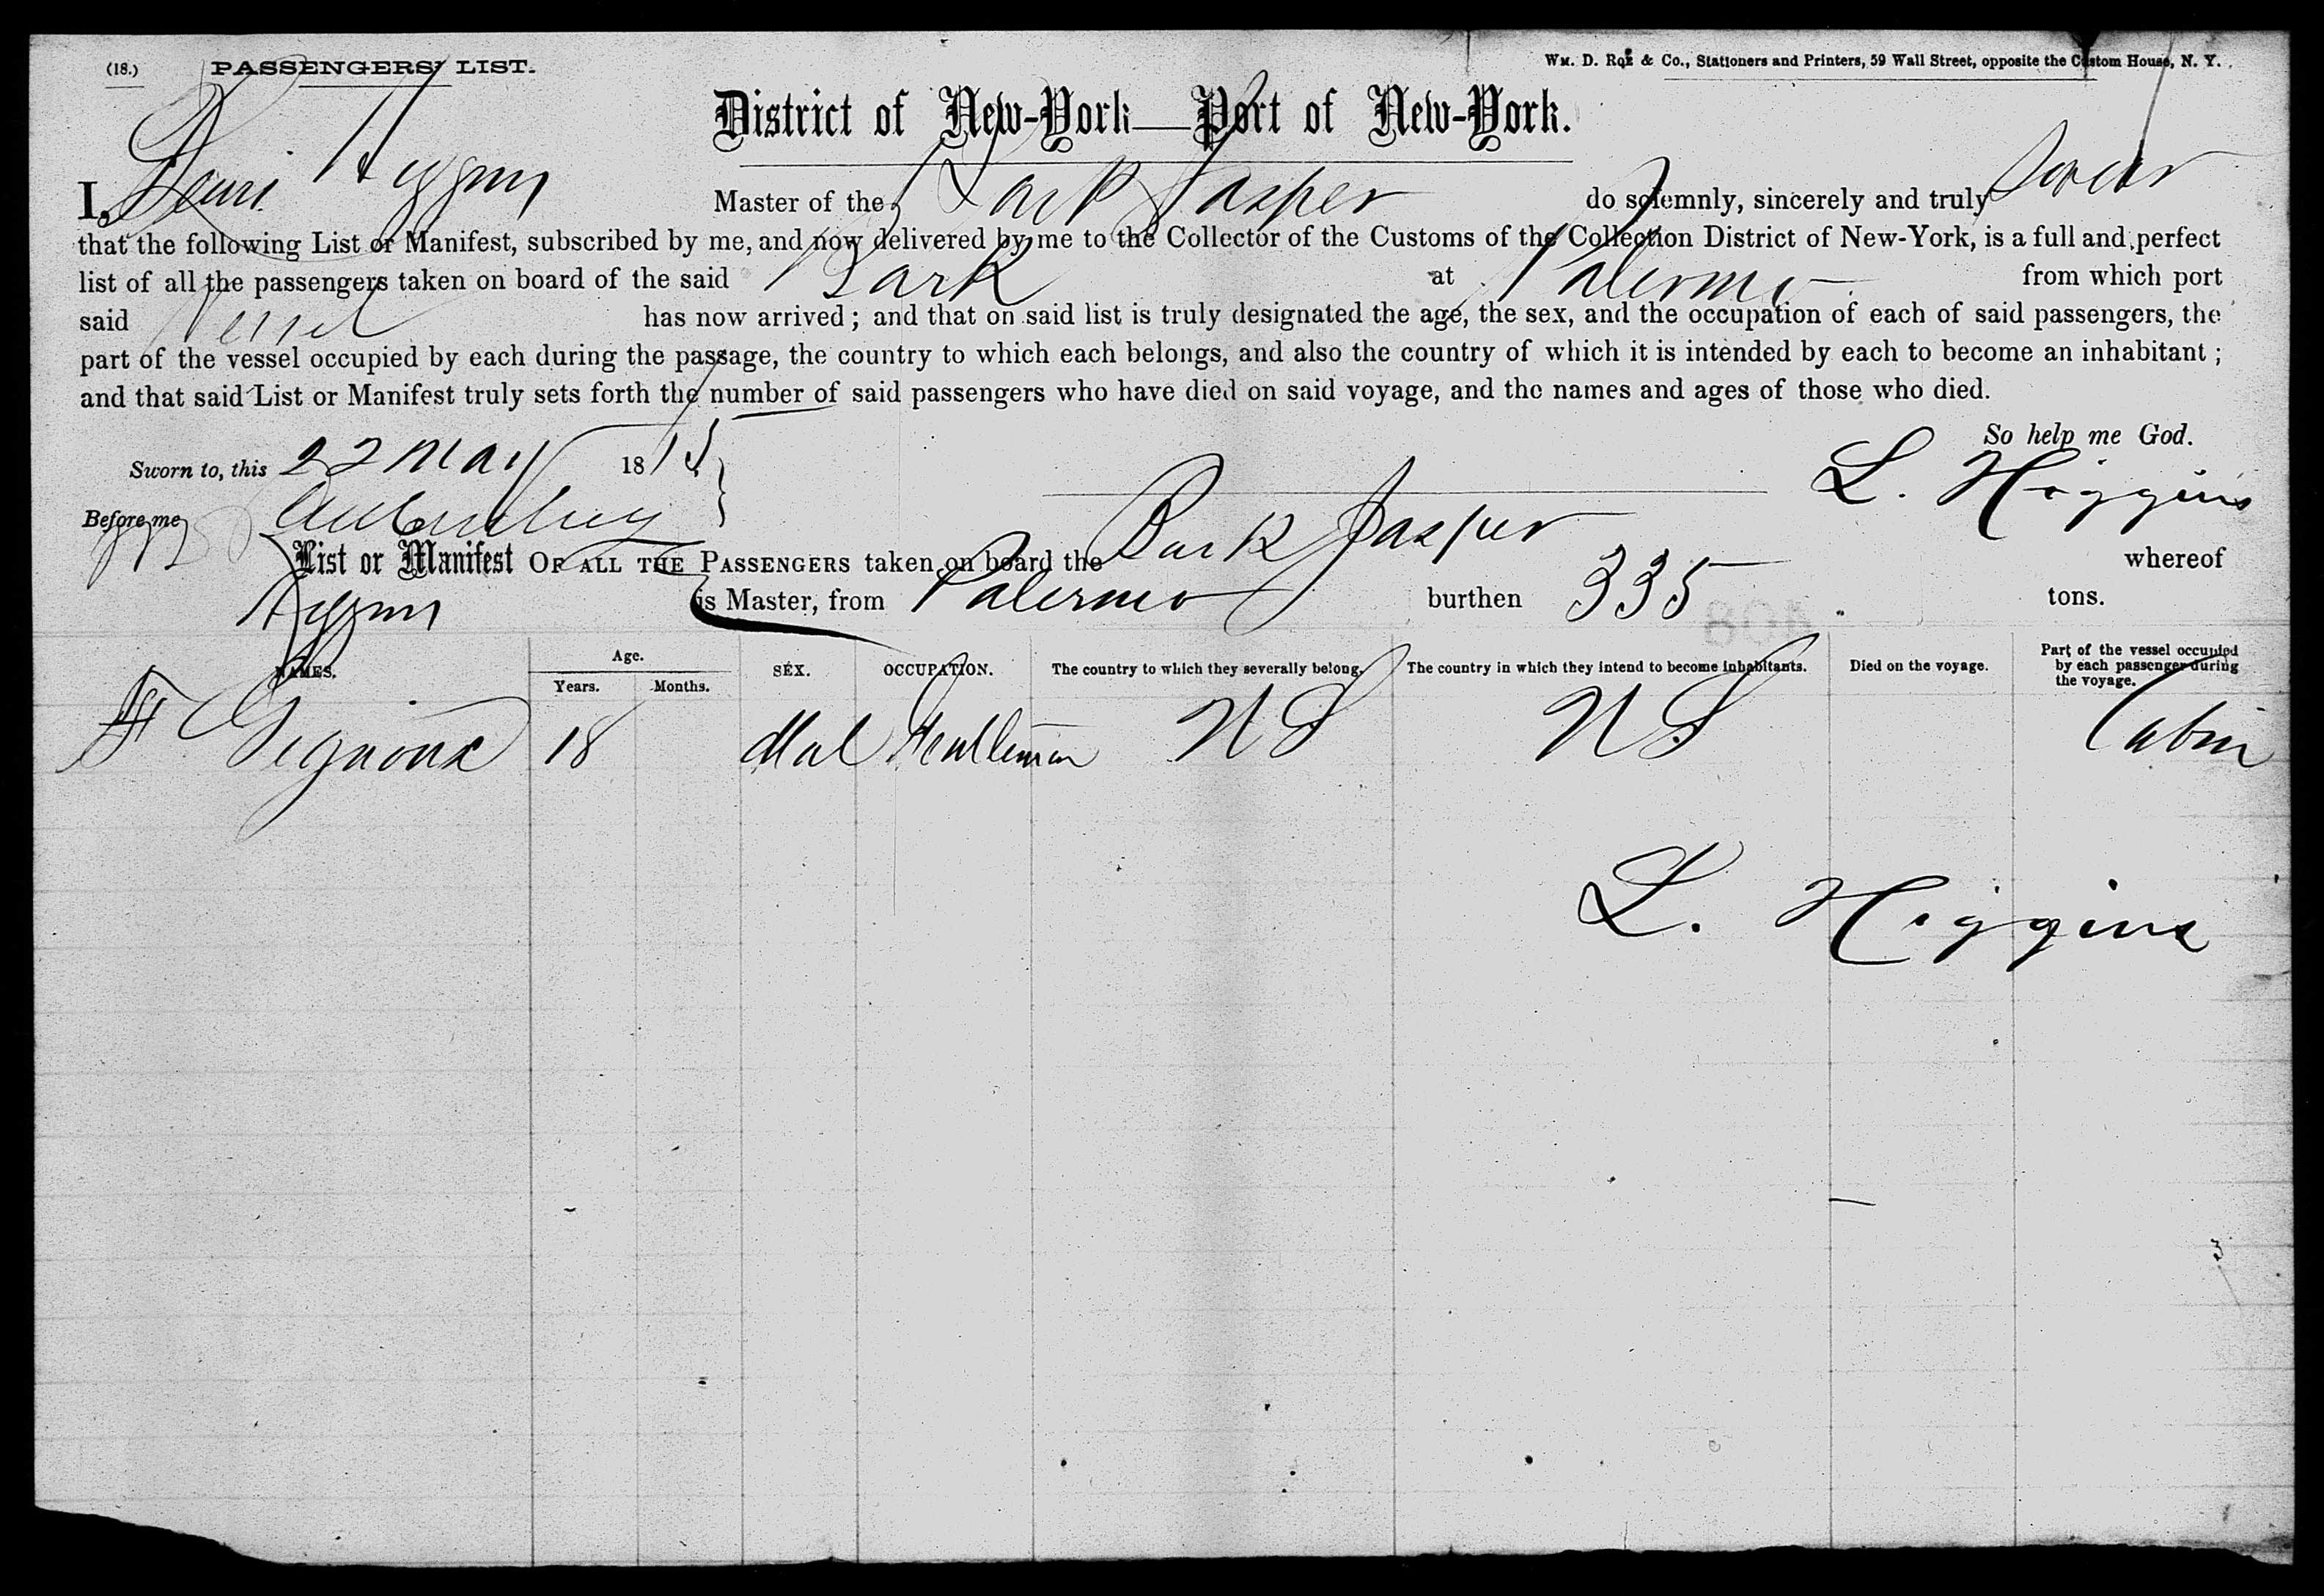 (18.) PASSENGERS' LIST. Wm. D. Roe & Co., Stationers and Printers, 59 Wall Street, opposite the Custom House, N. Y.
District of New-York—Port of New-York.
I, Higgins Master of the Bark Jasper do solemnly, sincerely and truly swear
that the following List or Manifest, subscribed by me, and now delivered by me to the Collector of the Customs of the Collection District of New-York, is a full and perfect
list of all the passengers taken on board of the said Bark at Palermo from which port
said Vessel has now arrived; and that on said list is truly designated the age, the sex, and the occupation of each of said passengers, the
part of the vessel occupied by each during the passage, the country to which each belongs, and also the country of which it is intended by each to become an inhabitant;
and that said List or Manifest truly sets forth the number of said passengers who have died on said voyage, and the names and ages of those who died.
So help me God.
Sworn to, this 22 May 1875
L. Higgins
Before me
List or Manifest OF ALL THE PASSENGERS taken on board the Bark Jasper whereof
Higgins is Master, from Palermo burthen 335 tons.
NAMES. Age. Years. Months. SEX. OCCUPATION. The country to which they severally belong. The country in which they intend to become inhabitants. Died on the voyage. Part of the vessel occupied by each passenger during the voyage.
18 Mal Gentleman U S U S Cabin
L. Higgins